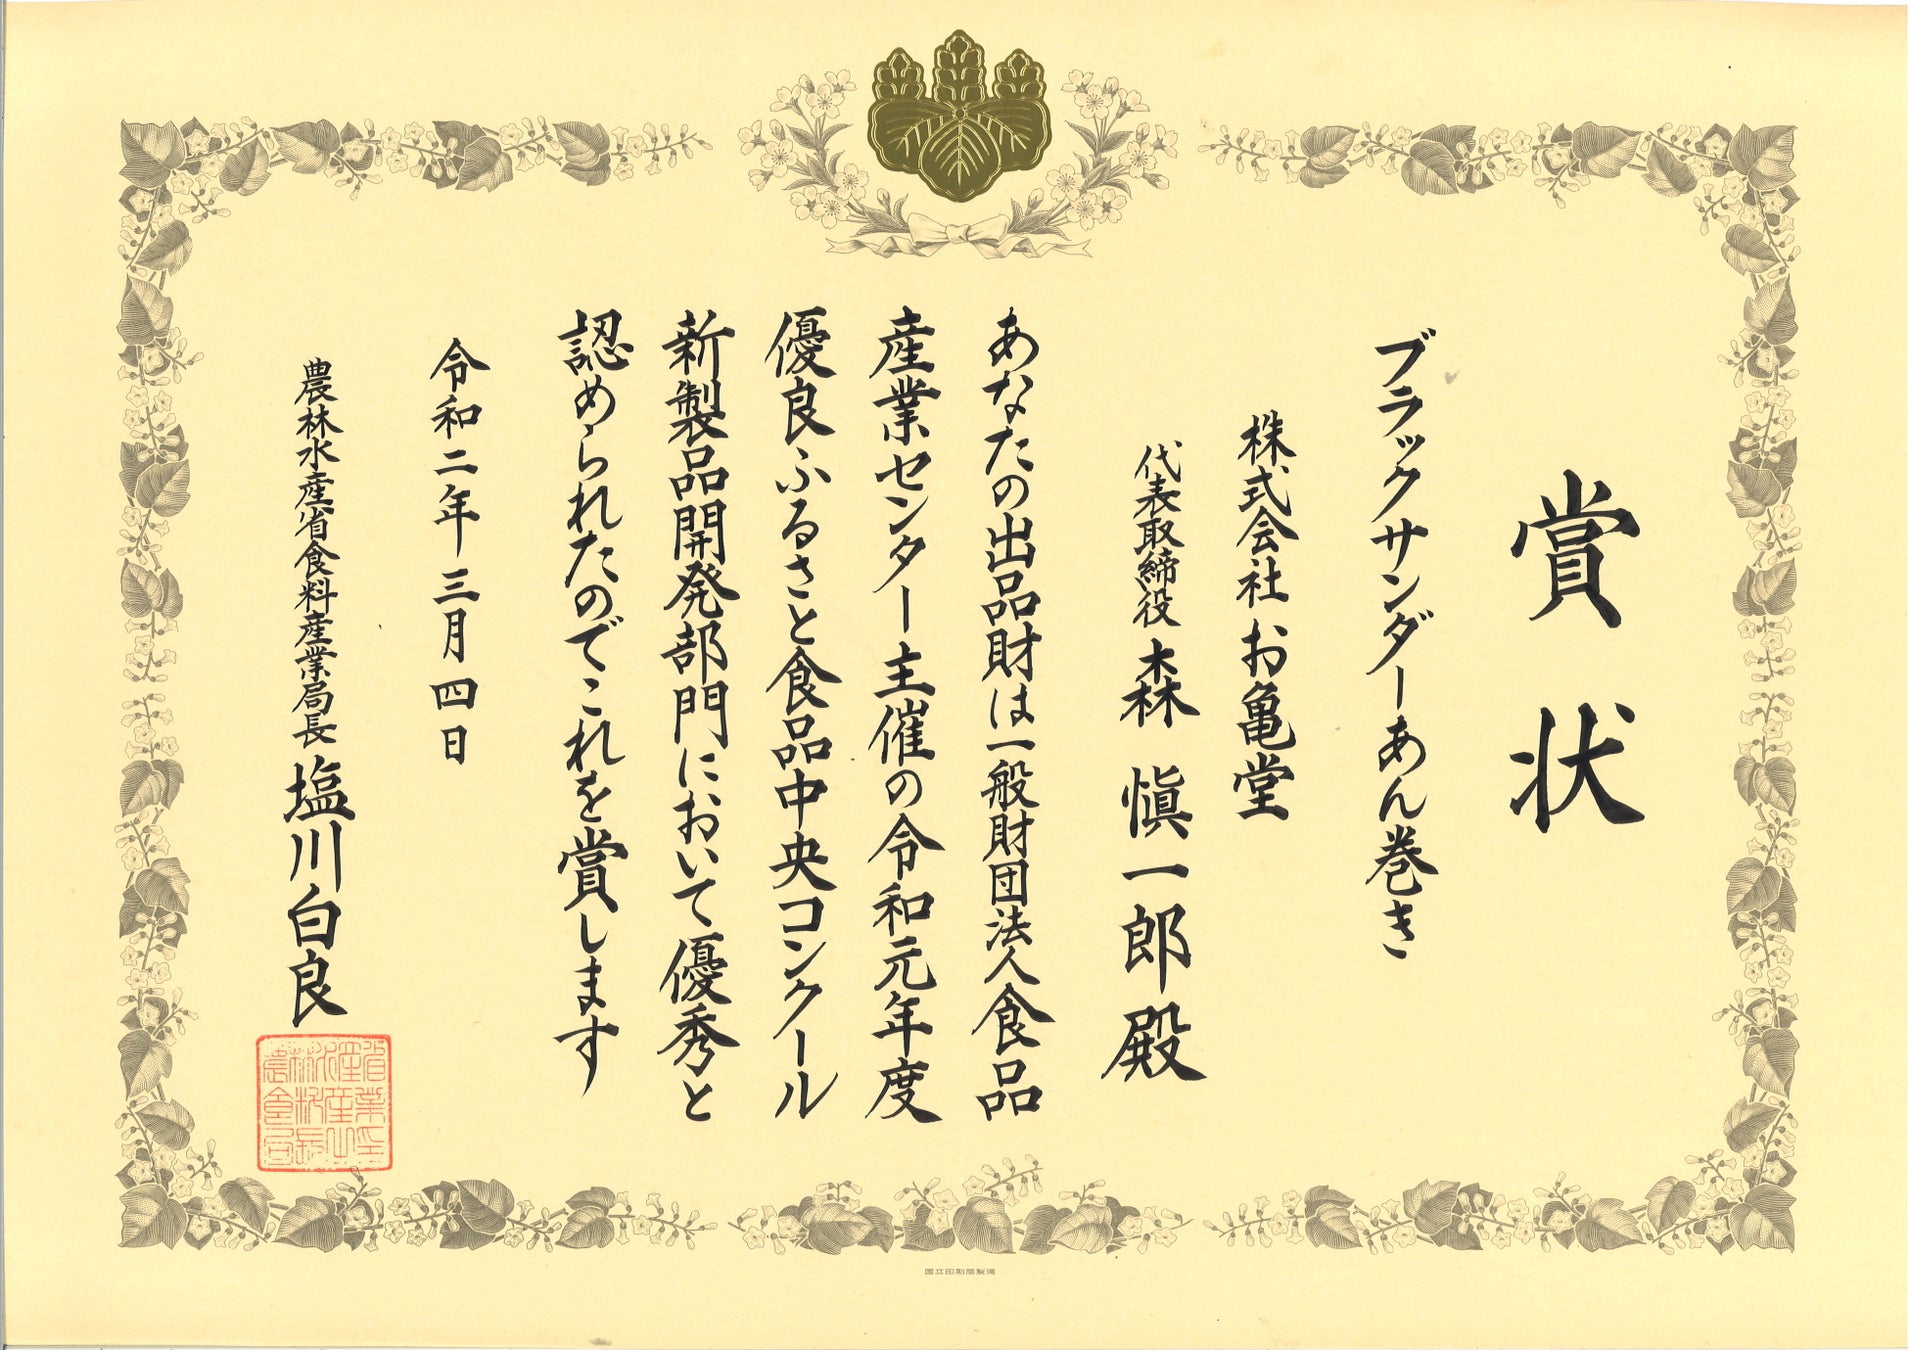 賞状
ブラックサンダーあん巻き
株式会社お亀堂
代表取締役 森 慎一郎 殿
あなたの出品財は一般財団法人食品
産業センター主催の令和元年度
優良ふるさと食品中央コンクール
新製品開発部門において優秀と
認められたのでこれを賞します
令和二年三月四日
農林水産省食料産業局長 塩川白良
国立印刷局製造